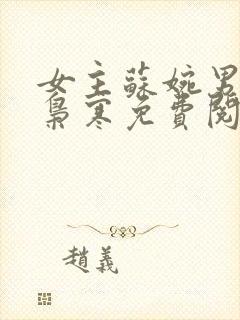 女主蘇婉男
梟寒免費閱
趙義